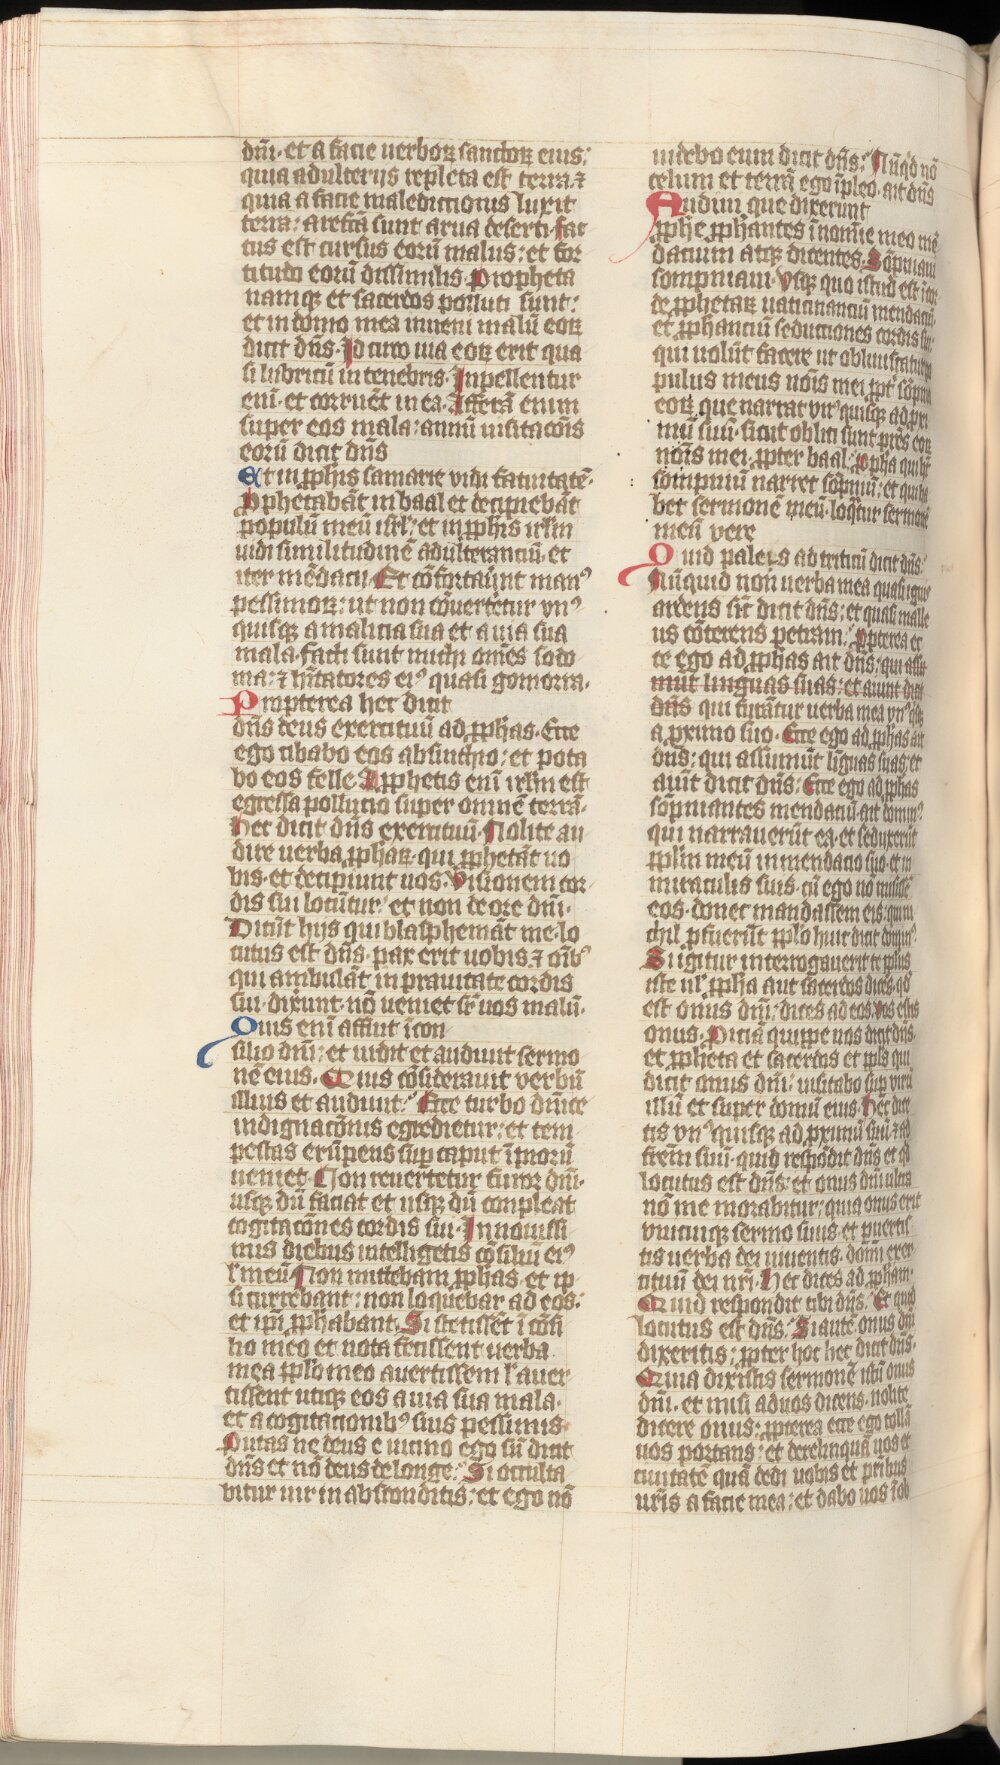 dn̄i· et a facie uerboꝝ sanctoꝝ eius:
quia adulterijs repleta est terra·⁊
quia a facie maledictionis luxit
terra: arefcā sunt arua deserti· fac
tus est cursus eorū malus: et for
titudo eorū dissimilis· Propheta
namqꝫ et sacerdos polluti sunt:
et in domo mea inueni malū eoꝝ
dicit dn̄s· Idcirco uia eoꝝ erit qua
si lubricū in tenebris· Inpellentur
eni᷑· et corruēt in ea· Afferā enim
super eos mala: annū uisitacōis
eorū dicit dn̄s
Et in ꝓphis samarie vidi fatuitatē·
Prophetabāt in baal et decipiebāt
populū meū isrl̄: et in ꝓphis irlm̄
uidi similitudinē adulteranciū· et
iter mēdacii· Et cōfortauūt manꝰ
pessimoꝝ: ut non cōuerteretur vnꝰ
quisqꝫ a malicia sua et a uia sua
mala· facti sunt michi om̄es sodo
ma: ⁊ hītatores eiꝰ quasi gomorra·
Propterea hec dicit
dn̄s deus exercituū ad ꝓphas· Ecce
ego cibabo eos absinthio: et pota
bo eos felle· A ꝓphetis eni᷑ irlm̄ est
egressa pollucio super omnē terrā·
Hec dicit dn̄s exercituū· Nolite au
dire uerba ꝓphaꝝ· qui ꝓphetāt uo
bis· et decipiunt uos· Visionem cor
dis sui locūtur: et non de ore dn̄i·
Dicūt hijs qui blasphemāt me· lo
cutus est dn̄s· pax erit uobis· ⁊ oībꝰ
qui ambulāt in prauitate cordis
sui· dixunt· nō ueniet sr̄ uos malū·
Quis eni᷑ affuit ī con
silio dn̄i: et uidit et audiuit sermo
nē eius· Quis cōsiderauit verbū
illius et audiuit: Ecce turbo dn̄ice
indignacōnis egredietur: et tem
pestas erūpens suꝑ caput īpiorū
ueniet· Non reuertetur furor dn̄i·
usqꝫ dū faciat et usqꝫ dū compleat
cogitacōnes cordis sui· In nouissi
mis diebus intelligetis cōsiliū eiꝰ
Non mittebam ꝓphas· et ip
si currebant: non loquebar ad eos:
et ipi᷑ ꝓphabant· Si stetissēt ī cōsi
lio meo et nota fecissent uerba
mea ꝓplo meo auertissem l̓ auer
tissent utiqꝫ eos a uia sua mala·
et a cogitacionibꝰ suis pessimis·
Putas ne deus e uicino ego sū dicit
dn̄s et nō deus de longe: Si occulta
bitur uir in absconditis: et ego nō
uidebo eum dicit dn̄s: Nūqd nō
celum et terrā ego īpleo· ait dn̄s
Audiui que dixerunt
ꝓphe ꝓphantes ī nomīe meo mē
dacium atqꝫ dicentes· Sōpniaui
sompniaui· Vsqꝫ quo istud est ī cor
de ꝓphetaꝝ uaticinanciū mendaciū·
et ꝓphanciū seductiones cordis sui:
qui uolūt facere ut obliuiscatur po
pulus meus nōis mei ꝓpt̓ sōpnia
eoꝝ que narrat vnꝰ quisqꝫ ad pxi
mū suū· sicut obliti sunt pr̄es eoꝝ
nōis mei· ꝓpter baal: Ꝓpha qui hꝫ
sompniū narret sōpniū: et qui ha
bet sermonē meū· loq̄tur sermonē
meū vere
Quid paleis ad triticū dicit dn̄s:
Nūquid non uerba mea quasi ignis
ardens sūt dicit dn̄s: et quasi malle
us cōterens petram: Ꝓpterea ec
ce ego ad ꝓphas ait dn̄s: qui assu
mūt linguas suas: et aiunt dicit
dn̄s qui furātur uerba mea vnꝰqsqꝫ
a ꝓximo suo· Ecce ego ad ꝓphas ait
dn̄s: qui assumūt līguas suas et
aiūt dicit dn̄s: Ecce ego ad ꝓphas
sōpniantes mendaciū· ait dominꝰ
qui narrauerūt ea· et seduxerūt
ꝓplm̄ meū in mendacio suo· et in
miraculis suis· cū ego nō misissē
eos· donec mandassem eis· qui ni
chil ꝓfuerūt ꝓplo huic dicit dominꝰ·
Si igitur interrogauerit te ꝓplus
iste ul̓ ꝓpha aut sacerdos dicēs· qd
est onus dn̄i: dices ad eos· vos estis
onus· Piciā quippe uos dicit dn̄s·
et ꝓpheta et sacerdos et ꝓpls qui
dicit onus dn̄i: uisitabo suꝑ virū
illū et super domū eius· Hec dice
tis vnꝰ quisqꝫ ad ꝓximū suū· ⁊ ad
frēm suū· quid respōdit dn̄s et qd
locutus est dn̄s: et onus dn̄i ultra
nō me morabitur: quia onus erit
vnicuiqꝫ sermo suus· et puertis
tis uerba dei uiuentis· domi᷑ exer
cituū dei nr̄i· Hec dices ad ꝓpham·
Quid respondit tibi dn̄s: Et quid
locutus est dn̄s: Si autē· onus dn̄i
dixeritis: ꝓpter hoc hec dicit dn̄s·
Quia dixistis sermonē istū onus
dn̄i· et misi ad uos dicens· nolite
dicere onus: ꝓpterea ecce ego tollā
uos portans: et derelinquā uos et
ciuitatē quā dedi uobis et pribus
ur̄is a facie mea: et dabo uos ī ob